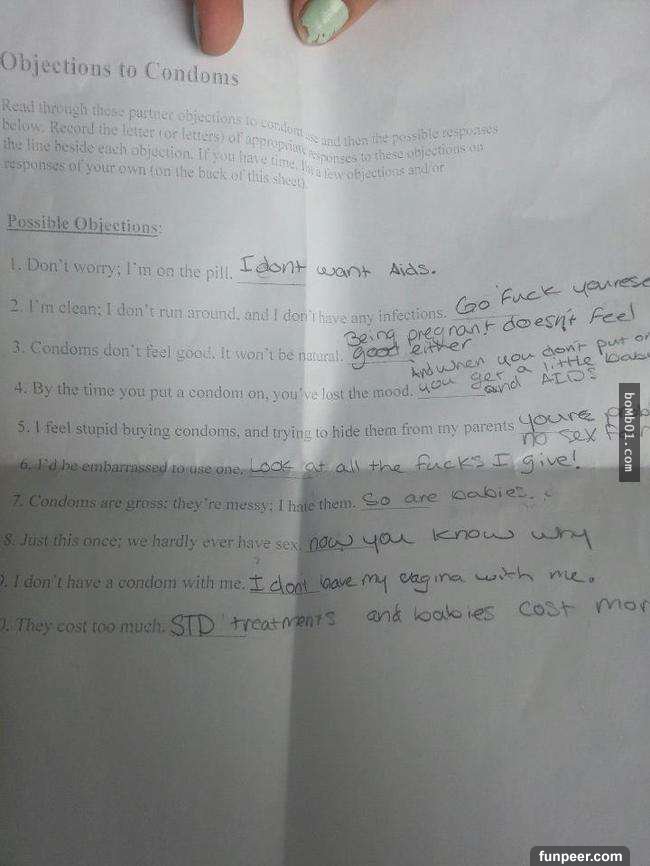 Objections to Condoms
Read through these partner objections to condom use and then the possible responses
below. Record the letter (or letters) of appropriate responses to these objections on
the line beside each objection. If you have time, a few objections and/or
responses of your own (on the back of this sheet).
Possible Objections:
1. Don't worry; I'm on the pill. I dont want Aids.
2. I'm clean; I don't run around, and I don't have any infections. Go Fuck yourse
Being pregnant doesn't feel
3. Condoms don't feel good. It won't be natural. good either
And when you don't put on
4. By the time you put a condom on, you've lost the mood. you get a little
and AIDS
5. I feel stupid buying condoms, and trying to hide them from my parents youre
no sex for
6. I'd be embarrassed to use one. Look at all the fucks I give!
7. Condoms are gross; they're messy; I hate them. So are babies.
8. Just this once; we hardly ever have sex. now you know why
. I don't have a condom with me. I dont have my vagina with me.
. They cost too much. STD treatments and babies cost mor
boMb01.com
funpeer.com